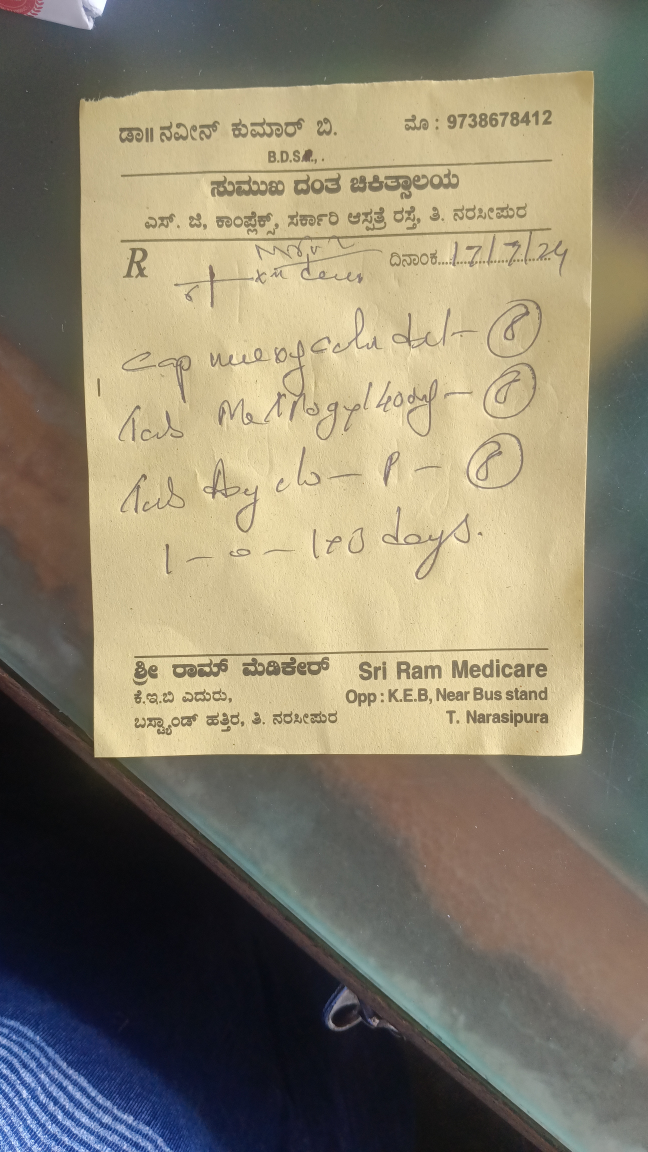 ಡಾ॥ ನವೀನ್ ಕುಮಾರ್ ಬಿ.
ಮೊ : 9738678412
B.D.S., .
ಸುಮುಖ ದಂತ ಚಿಕಿತ್ಸಾಲಯ
ಎಸ್. ಜೆ, ಕಾಂಪ್ಲೆಕ್ಸ್, ಸರ್ಕಾರಿ ಆಸ್ಪತ್ರೆ ರಸ್ತೆ, ತಿ. ನರಸೀಪುರ
R
ದಿನಾಂಕ 17/7/24
Cap - 8
Tab Metrogyl 400mg - 8
Tab - P - 8
1 - 0 - 1 days.
ಶ್ರೀ ರಾಮ್ ಮೆಡಿಕೇರ್
Sri Ram Medicare
ಕೆ.ಇ.ಬಿ ಎದುರು,
Opp : K.E.B, Near Bus stand
ಬಸ್ಟ್ಯಾಂಡ್ ಹತ್ತಿರ, ತಿ. ನರಸೀಪುರ
T. Narasipura